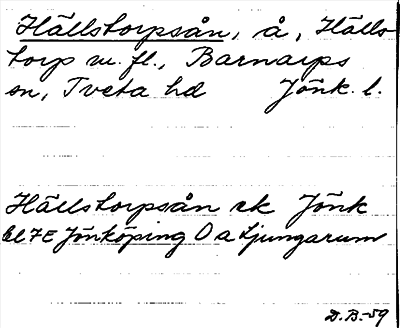 Hällstorpsån, å, Hälls
torp m. fl., Barnarps
sn, Tveta hd Jönk. l.
Hällstorpsån ek Jönk
bl 7E Jönköping O a Ljungarum
D.B.-59